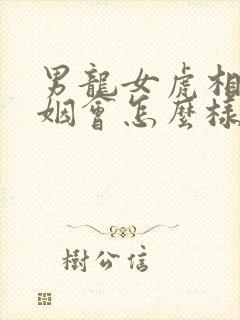 男龍女虎相
姻會怎麼樣
樹公信